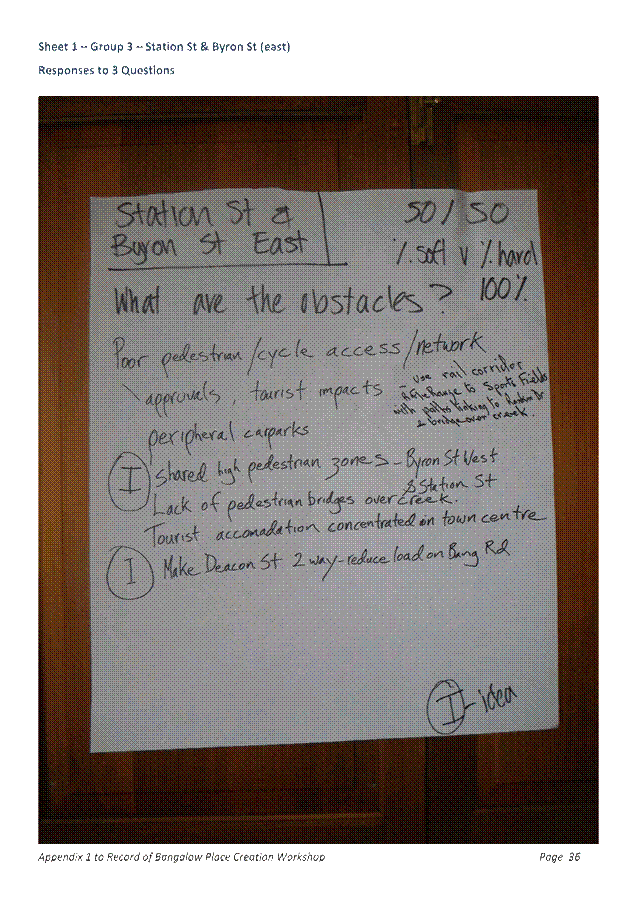 Sheet 1 – Group 3 – Station St & Byron St (east)
Responses to 3 Questions
Station St &
Byron St East
50 / 50
% soft v % hard
100%
What are the obstacles?
Poor pedestrian/cycle access/network
approvals, tourist impacts
– use rail corridor
Rifle Range to Sports Fields
with paths linking to
& bridge over creek.
peripheral carparks
I Shared high pedestrian zones – Byron St West
& Station St
Lack of pedestrian bridges over creek.
Tourist accomadation concentrated on town centre
I Make Deacon St 2 way – reduce load on Bang Rd
I – idea
Appendix 1 to Record of Bangalow Place Creation Workshop
Page 36